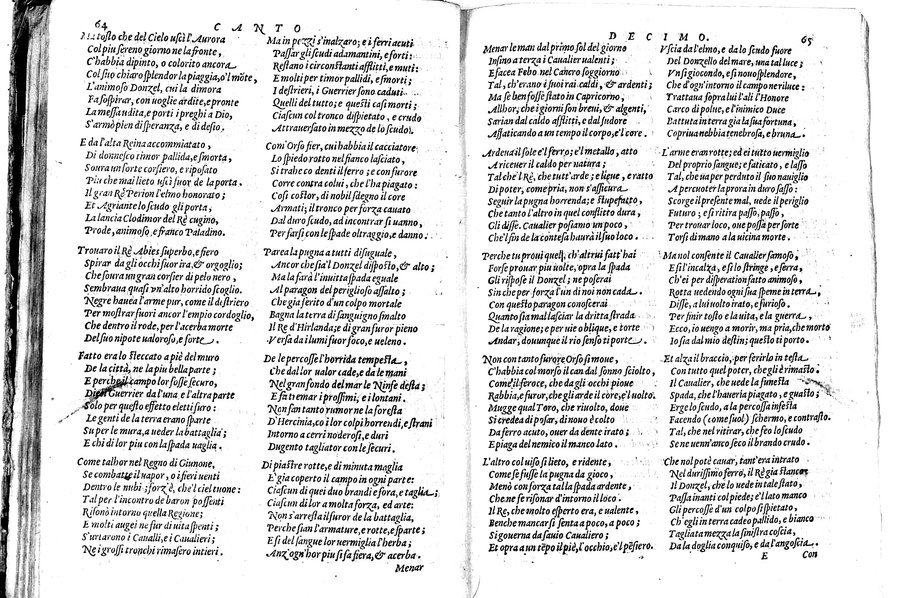 64 CANTO
Ma tosto che del Cielo uscì l'Aurora
Col piu sereno giorno ne la fronte,
C'habbia dipinto, o colorito ancora
Col suo chiaro splendor la piaggia, o'l mōte,
L'animoso Donzel, cui la dimora
Fa sospirar, con uoglie ardite, e pronte
La messa udita, e porti i preghi a Dio,
S'armò pien di speranza, e di desio.
E da l'alta Reina accommiatato,
Di donnesco timor pallida, e smorta,
Soura un forte corsiero, e riposato
Piu che mai lieto uscì fuor de la porta.
Il gran Rè Perion l'elmo honoraro;
Et Agriante lo scudo gli porta,
La lancia Clodimor del Rè cugino,
Prode, animoso, e franco Paladino.
Trouaro il Rè Abies superbo, e fiero
Spirar da gli occhi fuor ira, & orgoglio;
Che soura un gran corsier di pelo nero,
Sembraua quasi un'alto horrido scoglio.
Negre hauea l'arme pur, come il destriero
Per mostrar fuori ancor l'empio cordoglio,
Che dentro il rode, per l'acerba morte
Del suo nipote ualoroso, e forte.
Fatto era lo steccato a piè del muro
De la città, ne la piu bella parte;
E perche il campo lor fosse securo,
Dieci Guerrier da l'una e l'altra parte
Solo per questo effetto eletti furo:
Le genti de la terra erano sparte
Su per le mura, a ueder la battaglia;
E chi di lor piu con la spada uaglia.
Come talhor nel Regno di Giunone,
Se combatte il uapor, o i fieri uenti
Dentro le nubi; forz'è, che'l ciel tuone:
Tal per l'incontro de baron possenti
Risonò intorno quella Regione;
E molti augei ne fur di uita spenti;
S'urtarono i Caualli, e i Caualieri;
Ne i grossi tronchi rimasero intieri.
Ma in pezzi s'inalzaro; e i ferri acuti
Passar gli scudi adamantini, e forti:
Restano i circonstanti afflitti, e muti;
E molti per timor pallidi, e smorti;
I destrieri, i Guerrier sono caduti
Quelli del tutto; e questi quasi morti;
Ciascun col tronco dispietato, e crudo
Attrauersato in mezzo de lo scudo.
Com'Orso fier, cui habbia il cacciatore
Lo spiedo rotto nel fianco lasciato,
Si trahe co denti il ferro; e con furore
Corre contra colui, che l'ha piagato:
Così costor, di nobil sdegno il core
Armati; il tronco per forza cauato
Dal duro scudo, ad incontrar si uanno,
Per farsi con le spade oltraggio, e danno.
Parea la pugna a tutti disuguale,
Ancor che sia'l Donzel disposto, & alto;
Ma la farà l'inuitta spada eguale
Al paragon del periglioso assalto;
Che già ferito d'un colpo mortale
Bagna la terra di sanguigno smalto
Il Re d'Hirlanda; e di gran furor pieno
Versa da i lumi fuor foco, e ueleno.
De le percosse l'horrida tempesta,
Che dal lor ualor cade, e da le mani
Nel gran fondo del mar le Ninfe desta;
E fa temer i prossimi, e i lontani.
Non fan tanto rumor ne la foresta
D'Hercinia, co i lor colpi horrendi, e strani
Intorno a cerri noderosi, e duri
Dugento tagliator con le securi.
Di piastre rotte, e di minuta maglia
E' già coperto il campo in ogni parte:
Ciascun di quei duo brandi e fora, e taglia;
Ciascun di lor a molta forza, ed arte:
Non s'arresta il furor de la battaglia,
Perche sian l'armature, e rotte, e sparte;
E si del sangue lor uermiglia l'herba;
Anz'ogn'hor piu si fa fiera, & acerba.
Menar
DECIMO. 65
Menar le man dal primo sol del giorno
Insino a terza i Caualier ualenti;
E facea Febo nel Cancro soggiorno
Tal, ch'erano i suoi rai caldi, & ardenti;
Ma se ben fosse stato in Capricorno,
Allhor, che i giorni son breui, & algenti,
Sarian dal caldo afflitti, e dal sudore
Affaticando a un tempo il corpo, e'l core.
Ardeua il sole e'l ferro; e'l metallo, atto
A riceuer il caldo per natura;
Tal che'l Rè, che tutt'arde; e lique, e ratto
Di poter, come pria, non s'assicura
Seguir la pugna horrenda; e stupefatto,
Che tanto l'altro in quel conflitto dura,
Gli disse. Caualier posiamo un poco,
Che'l fin de la contesa haurà il suo loco.
Perche tu proui quel, ch'altrui fatt'hai
Forse prouar piu uolte, opra la spada
Gli rispose il Donzel; ne poserai
Sin che per forza l'un di noi non cada.
Con questo paragon conoscerai
Quanto sia mal lasciar la dritta strada
De la ragione; e per uie oblique, e torte
Andar, douunque il rio senso ti porte.
Non con tanto furore Orso si moue,
C'habbia col morso il can dal sonno sciolto,
Come il feroce, che da gli occhi pioue
Rabbia, e furor, che gli arde il core, e'l uolto.
Mugge qual Toro, che riuolto, doue
Si credea di posar, di nouo è colto
Da ferro acuto, ouer da dente irato;
E piaga del nemico il manco lato.
L'altro col uiso sì lieto, e ridente,
Come se fusse la pugna da gioco,
Menò con forza tal la spada ardente,
Che ne fe risonar d'intorno il loco.
Il Re, che molto esperto era, e ualente,
Benche mancar si senta a poco, a poco;
Si gouerna da sauio Caualiero;
Et opra a un tēpo il piè, l'occhio, e'l pēsiero.
Vscia da l'elmo, e da lo scudo fuore
Del Donzello del mare, una tal luce;
Vn sì giocondo, e sì nouo splendore,
Che d'ogn'intorno il campo ne riluce:
Trattaua sopra lui l'ali l'Honore
Carco di palue, e l'inimico Duce
Battuta in terra gia la sua fortuna,
Copriua nebbia tenebrosa, e bruna.
L'arme eran rotte; ed ei tutto uermiglio
Del proprio sangue; e faticato, e lasso
Tal, che ua per perduto il suo nauiglio
A percuoter la prora in duro sasso:
Scorge il presente mal, uede il periglio
Futuro; e si ritira passo, passo,
Per trouar loco, oue possa per sorte
Torsi di mano a la uicina morte.
Ma nol consente il Caualier famoso,
E sì l'incalza, e sì lo stringe, e serra,
Ch'ei per disperation fatto animoso,
Rotta uedendo ogni sua speme in terra,
Disse, a lui uolto irato, e furioso.
Per finir tosto e la uita, e la guerra,
Ecco, io uengo a morir, ma pria, che morto
Io sia dal mio destin; questo ti porto.
Et alza il braccio, per ferirlo in testa
Con tutto quel poter, che gli è rimasto.
Il Caualier, che uede la funesta
Spada, che l'haueria piagato, e guasto;
Erge lo scudo, a la percossa infesta
Facendo (come suol) schermo, e contrasto.
Tal, che nel ritirar, che feo lo scudo
Se ne uenn'anco seco il brando crudo.
Che nol potè cauar, tant'era intrato
Nel durissimo ferro, il Rè gia stanco;
Il Donzel, che lo uede intal estato,
Passa inanti col piede; e'l lato manco
Gli percosse d'un colpo sì spietato,
Ch'egli in terra cadeo pallido, e bianco
Tagliata mezza la sinistra coscia,
Da la doglia conquiso, e da l'angoscia.
E Con